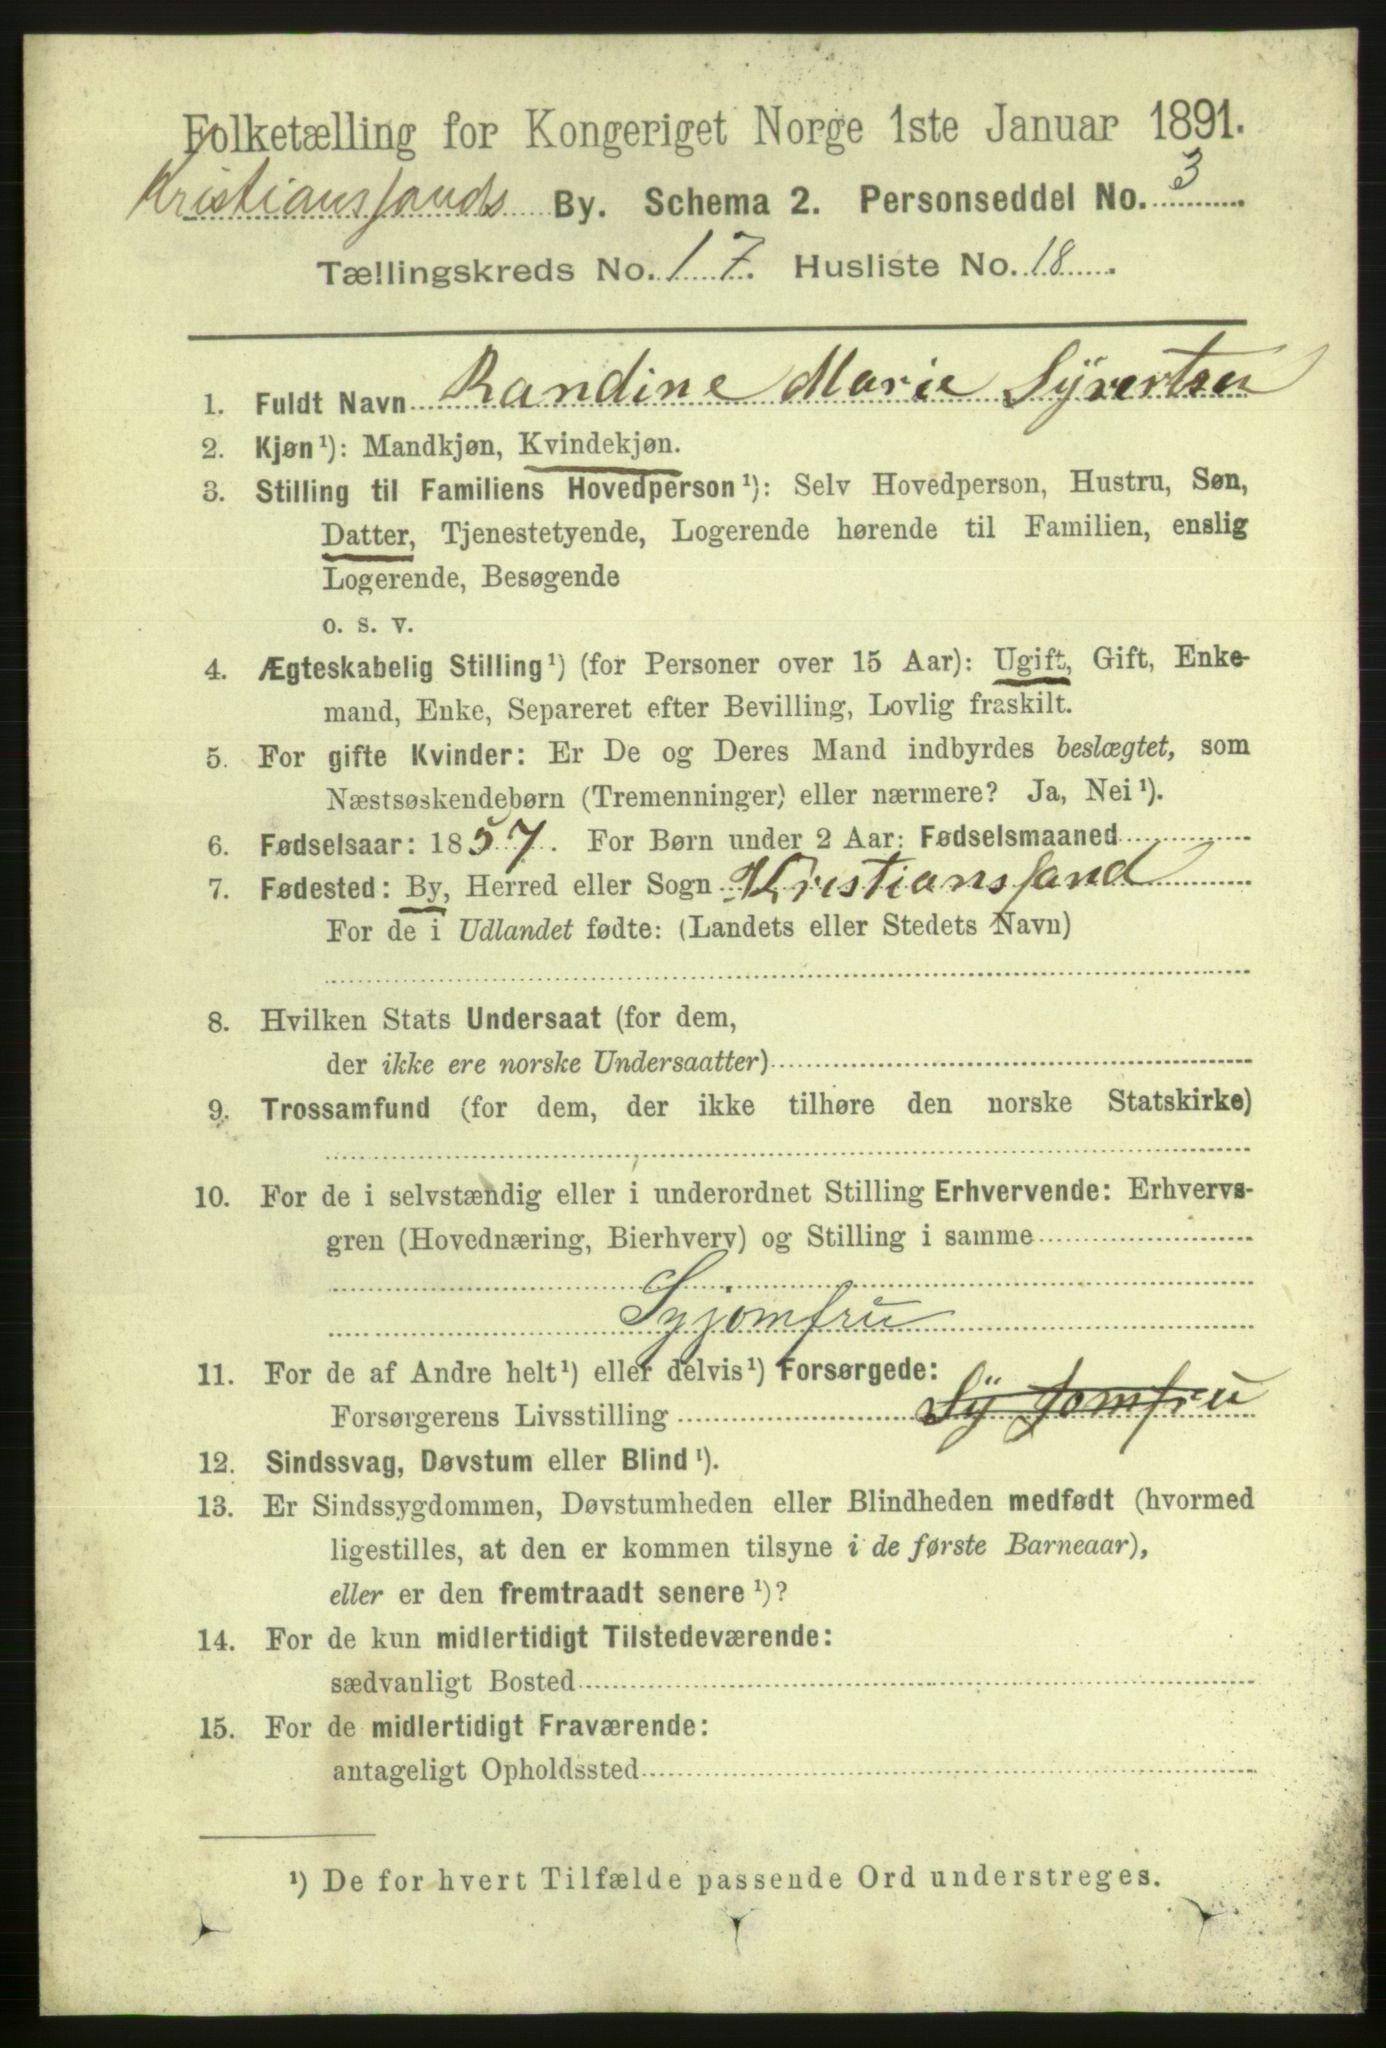 Folketælling for Kongeriget Norge 1ste Januar 1891.
Kristianssands By. Schema 2. Personseddel No. 3
Tællingskreds No. 17. Husliste No. 18
1. Fuldt Navn Randine Marie Syvertsen
2. Kjøn¹): Mandkjøn, Kvindekjøn.
3. Stilling til Familiens Hovedperson¹): Selv Hovedperson, Hustru, Søn,
Datter, Tjenestetyende, Logerende hørende til Familien, enslig
Logerende, Besøgende
o. s. v.
4. Ægteskabelig Stilling¹) (for Personer over 15 Aar): Ugift, Gift, Enke-
mand, Enke, Separeret efter Bevilling, Lovlig fraskilt.
5. For gifte Kvinder: Er De og Deres Mand indbyrdes beslægtet, som
Næstsøskendebørn (Tremenninger) eller nærmere? Ja, Nei¹).
6. Fødselsaar: 1857. For Børn under 2 Aar: Fødselsmaaned
7. Fødested: By, Herred eller Sogn Kristianssand
For de i Udlandet fødte: (Landets eller Stedets Navn)
8. Hvilken Stats Undersaat (for dem,
der ikke ere norske Undersaatter)
9. Trossamfund (for dem, der ikke tilhøre den norske Statskirke)
10. For de i selvstændig eller i underordnet Stilling Erhvervende: Erhvervs-
gren (Hovednæring, Bierhverv) og Stilling i samme
Syjomfru
11. For de af Andre helt¹) eller delvis¹) Forsørgede:
Forsørgerens Livsstilling Sy Jomfru
12. Sindssvag, Døvstum eller Blind¹).
13. Er Sindssygdommen, Døvstumheden eller Blindheden medfødt (hvormed
ligestilles, at den er kommen tilsyne i de første Barneaar),
eller er den fremtraadt senere¹)?
14. For de kun midlertidigt Tilstedeværende:
sædvanligt Bosted
15. For de midlertidigt Fraværende:
antageligt Opholdssted
¹) De for hvert Tilfælde passende Ord understreges.